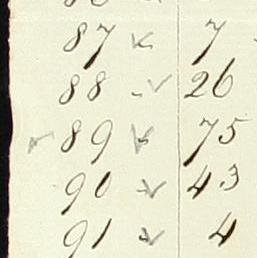 87 7
88 26
89 75
90 43
91 4